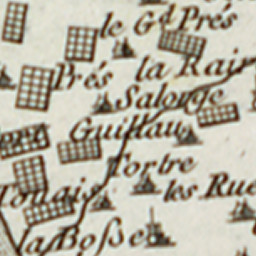 le Gd Prés
Prés la Rair
Salorge
Guillau
Tortre
Touais les Rue
la Boſse